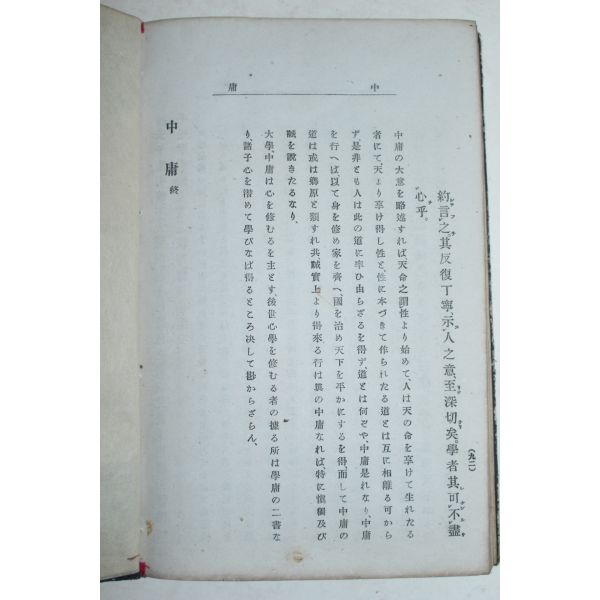 中庸
(九二)
約言之其反復丁寧示人之意、至深切矣。學者其可不盡
心乎。
中庸の大意を略述すれば、天命之謂性より始めて、人は天の命を享けて生れたる
者にて、天より享け得し性と、性に本づきて作られたる道とは互に相離る可から
ず、是非とも人は此の道に率ひ由らざるを得ず、道とは何ぞや、中庸是れなり、中庸
を行へば、以て身を修め家を齊へ、國を治め天下を平かにするを得而して中庸の
道は或は鄕原と類すれ共誠實上より得來る行は眞の中庸なれば、特に愼獨及び
誠を說きたるなり、
大學、中庸は心を修むるを主とす、後世心學を修むる者の據る所は學庸の二書な
り、諸子心を潜めて學びなば得るところ決して尠からざらん、
中庸 終